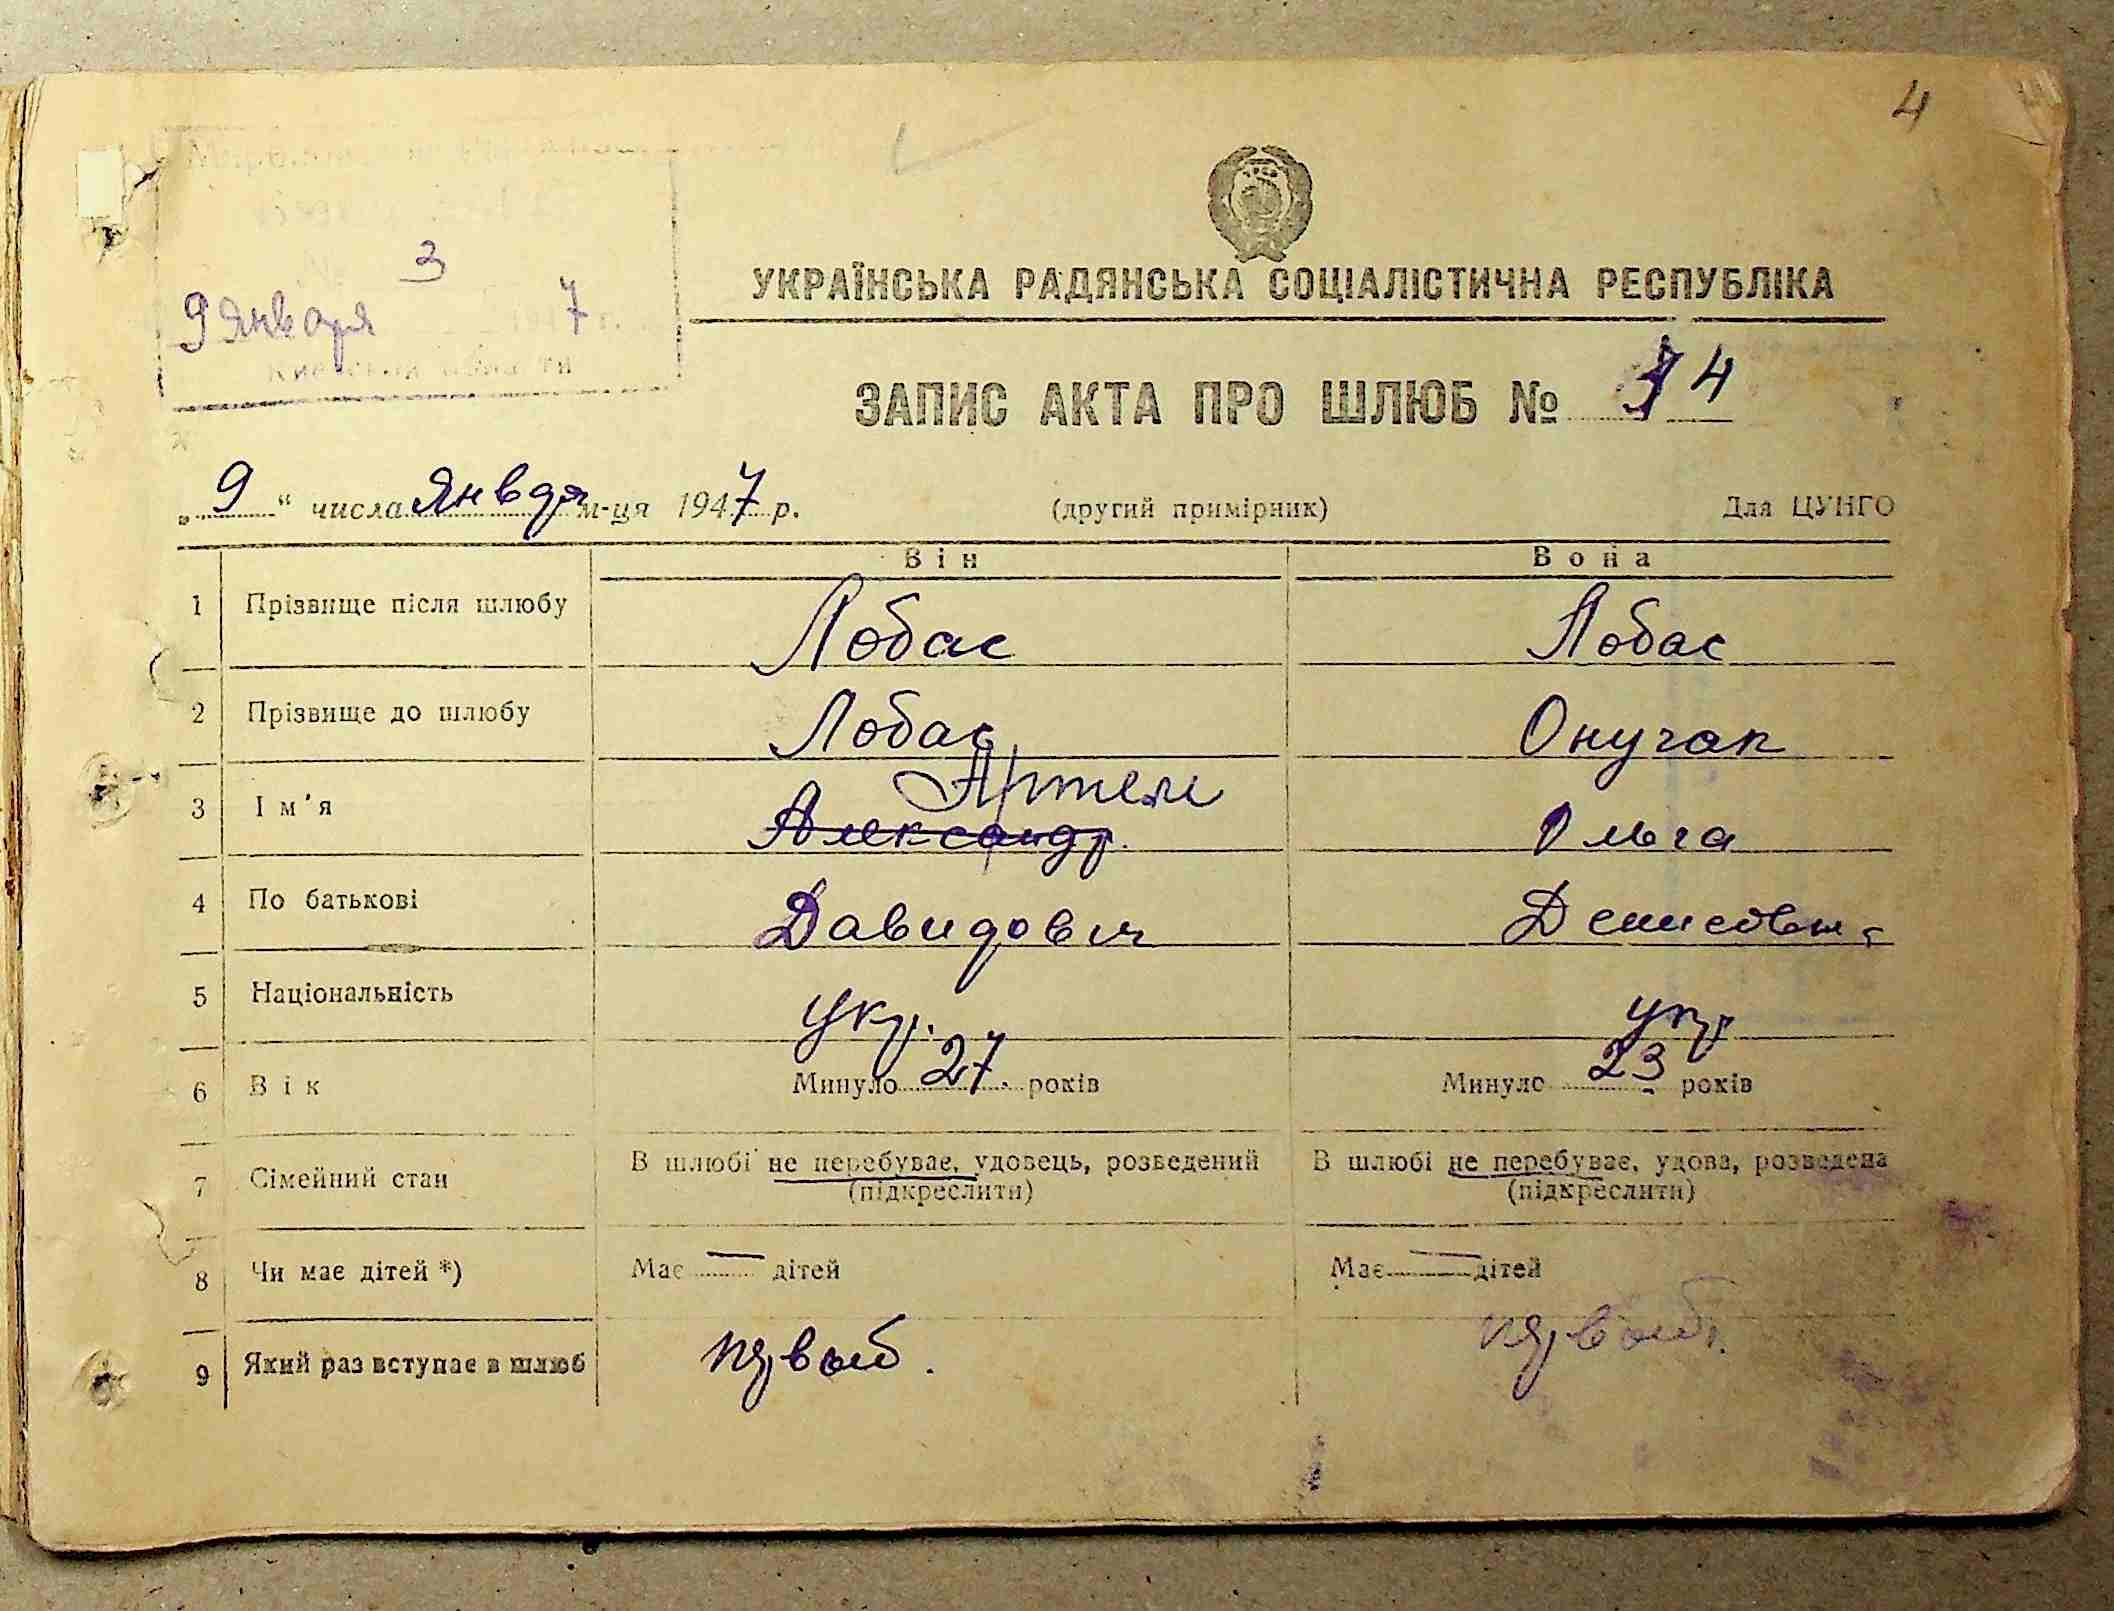 4
3
9 Января 7
УКРАЇНСЬКА РАДЯНСЬКА СОЦІАЛІСТИЧНА РЕСПУБЛІКА
ЗАПИС АКТА ПРО ШЛЮБ № 4
„9“ числа Января м-ця 1947 р. (другий примірник) Для ЦУНГО
Він Вона
1 Прізвище після шлюбу Лобас Лобас
2 Прізвище до шлюбу Лобас Онучак
Артем
3 Ім'я Александр. Ольга
4 По батькові Давидович Денисовна
5 Національність укр. укр
6 Вік Минуло 27. років Минуло 23 років
7 Сімейний стан В шлюбі не перебуває, удовець, розведений В шлюбі не перебуває, удова, розведена
(підкреслити) (підкреслити)
8 Чи має дітей *) Має — дітей Має — дітей
9 Який раз вступає в шлюб первый. первый.